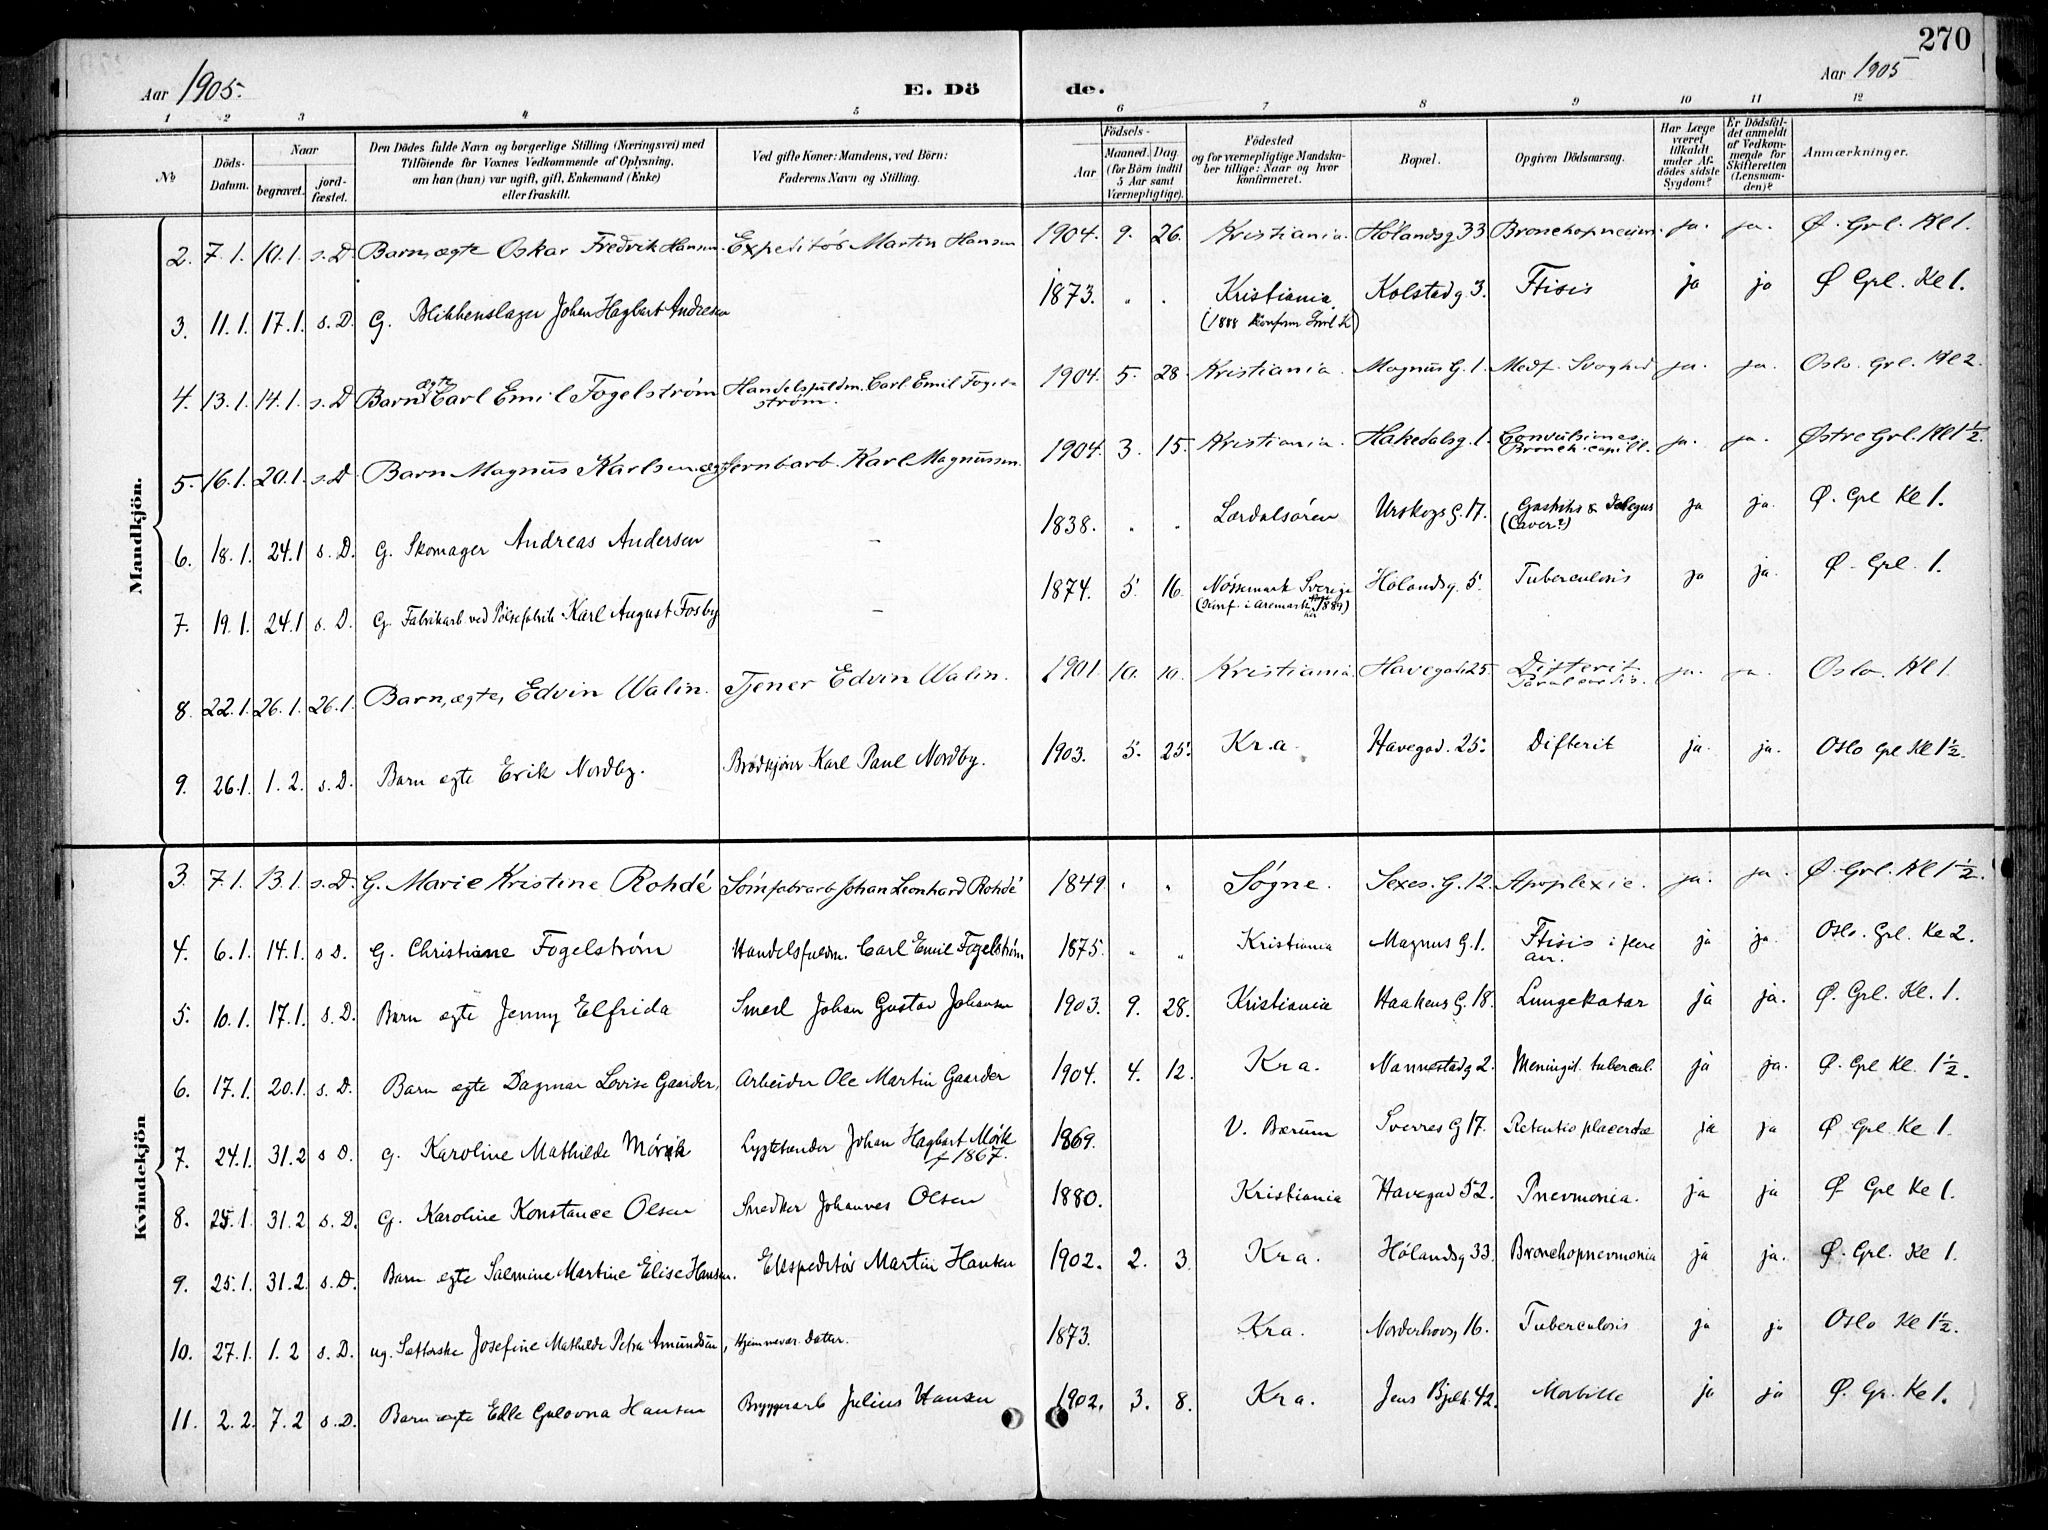 270
Aar 1905.
E. Dö de.
Aar 1905
1 2 3 4 5 6 7 8 9 10 11 12
№
Döds-Datum.
Naar
begravet.
jord-fæstet.
Den Dödes fulde Navn og borgerlige Stilling (Næringsvei) med
Tilföiende för Voxnes Vedkommende af Oplysning,
om han (hun) var ugift, gift, Enkemand (Enke)
eller fraskilt.
Ved gifte Koner: Mandens, ved Börn:
Faderens Navn og Stilling.
Födsels-
Aar
Maaned. Dag
(for Börn indtil
5 Aar samt
Værnepligtige).
Födested
og for værnepligtige Mandska-
ber tillige: Naar og hvor
konfirmeret.
Bopæl.
Opgiven Dödsaarsag.
Har Læge
været
tilkaldt
under Af-
dödes sidste
Sygdom?
Er Dödsfal-
det anmeldt
af Vedkom-
mende for
Skifteretten
(Lensman-
den)?
Anmærkninger.
Mandkjön.
2. 7.1. 10.1. s.D. Barn, ægte Oskar Fredrik Hansen. Expeditör Martin Hansen 1904. 9. 26. Kristiania. Hölandsg 33 Bronchopneum. ja. ja. Ø. Grl. Kl 1.
3. 11.1. 17.1. s.D. G. Blikkenslager Johan Hagbart Andresen 1873. " . Kristiania. Kolstadg 3. Ftisis ja ja Ø Grl. Kl 1.
(1888 Konfirm Grl K)
4. 13.1. 14.1. s.D Barn ægte Carl Emil Fogelström Handelsfuldm. Carl Emil Fogel- 1904. 5. 28 Kristiania. Magnus G. 1. Medf. Svaghed ja. ja. Oslo. Grl. Kl 2.
ström.
5. 16.1. 20.1. s.D Barn Magnus Karlsen. ægt Jernbarb. Karl Magnussen. 1904. 3. 15. Kristiania. Hakedalsg. 1. Convulsiones ja. ja. Østre Grl. Kl 1½.
Bronch. capill.
6. 18.1. 24.1 s.D. G. Skomager Andreas Andersen - 1838. " " Lærdalsören Urskogs G. 17. Gastritis & ja ja. Ø. Grl Kl 1.
7. 19.1. 24.1 s.D. G. Fabrikarb ved Pölsefabrik Karl August Fosby - 1874. 5. 16. Nössemark Sverige Hölandsg. 5. Tuberculosis ja ja. Ø. Grl. 1
(Konf. i Aremark 1889)
8. 22.1. 26.1. 26.1. Barn, ægte, Edvin Walin. Tjener Edvin Walin. 1901. 10. 10. Kristiania Havegad. 25. Difterit ja. ja. Oslo. Kl 1.
Paral. cordis.
9. 26.1. 1.2. s.D. Barn ægte Erik Nordby. Brödkjörer Karl Paul Nordby. 1903. 5. 25. Kr.a. Havegad. 25. Difterit ja. ja. Oslo Grl Kl 1½.
Kvindekjön
3. 7.1. 13.1. s.D. G. Marie Kristine Rohdé Sömfabrarb Johan Leonhard Rohdé 1849. " " Søgne. Sexes. G. 12. Apoplexie. ja. ja. Ø. Grl. Kl 1½.
4. 6.1. 14.1. s D. G. Christiane Fogelström Handelsfuldm. Carl Emil Fogelström 1875. " " Kristiania Magnus G. 1. Ftisis i flere ja ja. Oslo. Grl. Kl 2.
aar.
5. 10.1. 17.1. s.D. Barn ægte Jenny Elfrida Smed Johan Gustav Johansen 1903. 9. 28. Kristiania Haakens G. 18. Lungekatar ja ja. Ø. Grl. Kl. 1.
6. 17.1. 20.1. s.D. Barn ægte Dagmar Lovise Gaarder, Arbeider Ole Martin Gaarder 1904. 4. 12. Kra. Nannestadg 2. Meningit. tubercul. ja ja. Ø. Grl Kl. 1½.
7. 24.1. 31.2 s D. G. Karoline Mathilde Mörk Lygtetænder Johan Hagbart Mörk 1869. V. Bærum Sverres G 17. Retentio placentæ ja ja Ø Grl Kl 1.
f 1867.
8. 25.1. 31.2 s.D. G. Karoline Konstance Olsen Snedker Johannes Olsen 1880. Kristiania Havegad 52. Pnevmonia. ja ja Ø Grl Kl 1.
9. 25.1. 31.2. s.D. Barn ægte Salmine Martine Elise Hansen. Ekspeditör Martin Hansen 1902. 2. 3. Kra. Hölandsg 33. Bronchopnevmonia ja ja. Ø. Grl. Kl 1.
10. 27.1. 1.2 s.D. ug. Sætterske Josefine Mathilde Petra Amundsen, Hjemmevær. datter. 1873. Kra. Norderhovsg 16. Tuberculosis ja ja Oslo Kl 1½.
11. 2.2. 7.2 s.D. Barn ægte Edle Gulovna Hansen Bryggerarb Julius Hansen 1902. 3. 8. Kra. Jens Bjelk. 42. Morbille ja ja Ø. Gr. Kl 1.